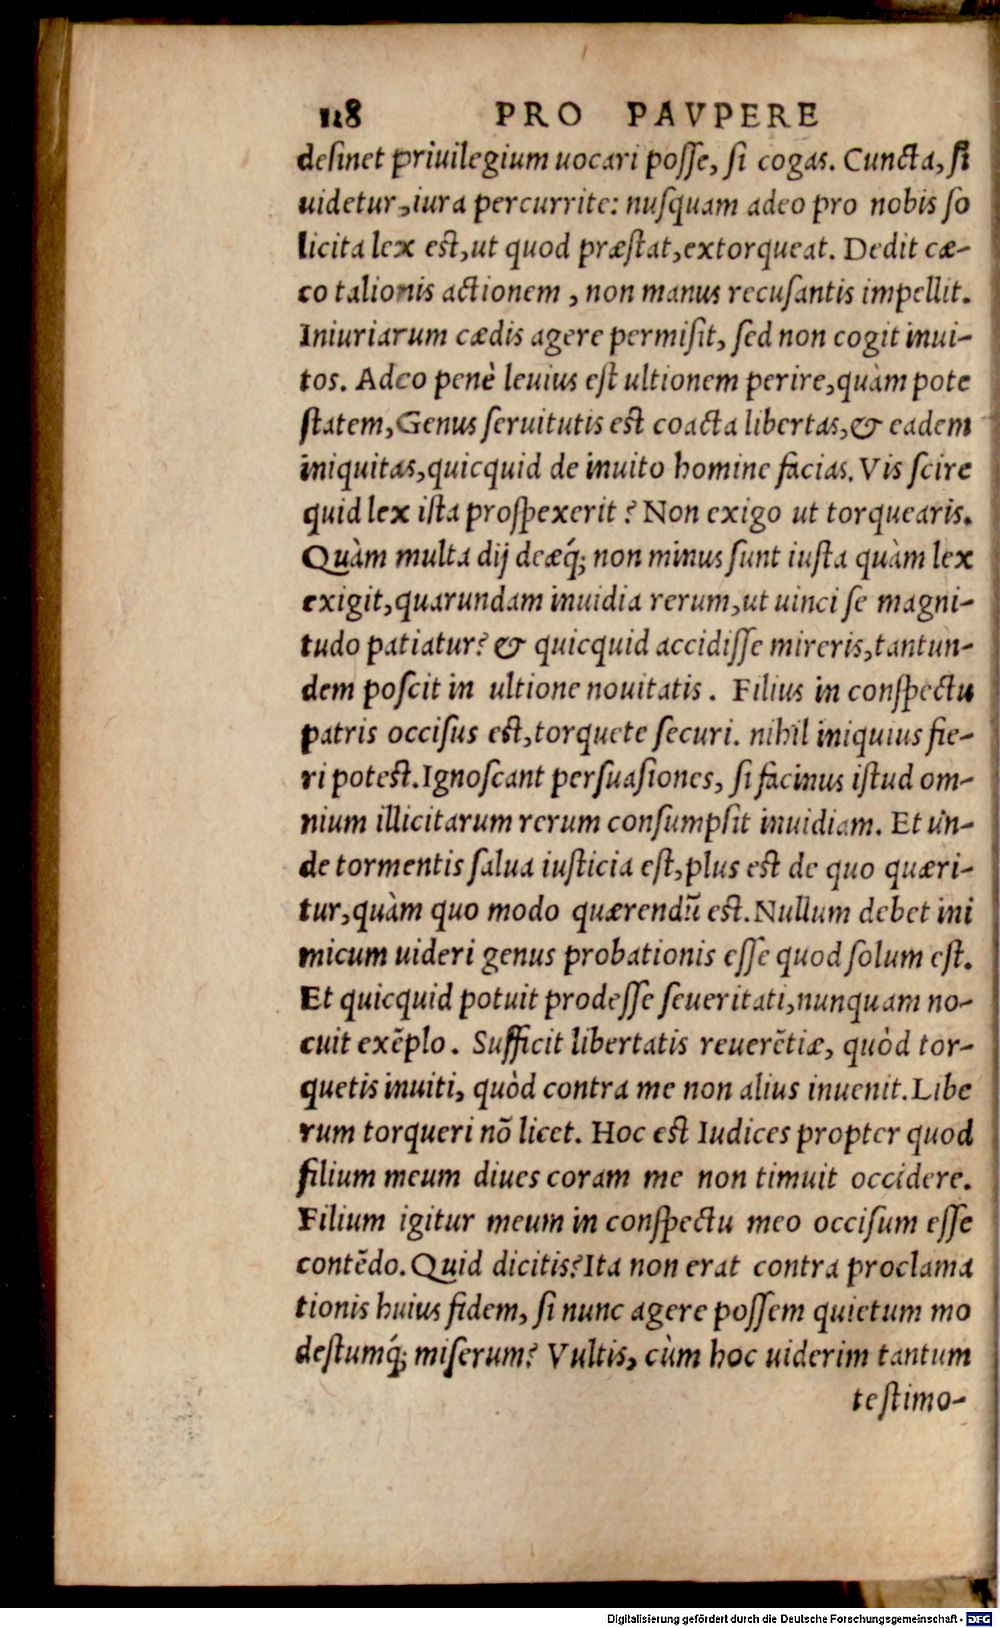 118 PRO PAVPERE
desinet priuilegium uocari posse, si cogas. Cuncta, si
uidetur, iura percurrite: nusquam adeo pro nobis so
licita lex est, ut quod præstat, extorqueat. Dedit cæ-
co talionis actionem, non manus recusantis impellit.
Iniuriarum cædis agere permisit, sed non cogit inui-
tos. Adeo penè leuius est ultionem perire, quàm pote
statem, Genus seruitutis est coacta libertas, & eadem
iniquitas, quicquid de inuito homine facias. Vis scire
quid lex ista prospexerit? Non exigo ut torquearis.
Quàm multa dij deæq́; non minus sunt iusta quàm lex
exigit, quarundam inuidia rerum, ut uinci se magni-
tudo patiatur? & quicquid accidisse mireris, tantun-
dem poscit in ultione nouitatis. Filius in conspectu
patris occisus est, torquete securi. nihil iniquius fie-
ri potest. Ignoscant persuasiones, si facinus istud om-
nium illicitarum rerum consumpsit inuidiam. Et un-
de tormentis salua iusticia est, plus est de quo quæri-
tur, quàm quo modo quærendū est. Nullum debet ini
micum uideri genus probationis esse quod solum est.
Et quicquid potuit prodesse seueritati, nunquam no-
cuit exēplo. Sufficit libertatis reuerētiæ, quòd tor-
quetis inuiti, quòd contra me non alius inuenit. Libe
rum torqueri nō licet. Hoc est Iudices propter quod
filium meum diues coram me non timuit occidere.
Filium igitur meum in conspectu meo occisum esse
contēdo. Quid dicitis? Ita non erat contra proclama
tionis huius fidem, si nunc agere possem quietum mo
destumq́; miserum? Vultis, cùm hoc uiderim tantum
testimo-
Digitalisierung gefördert durch die Deutsche Forschungsgemeinschaft - DFG